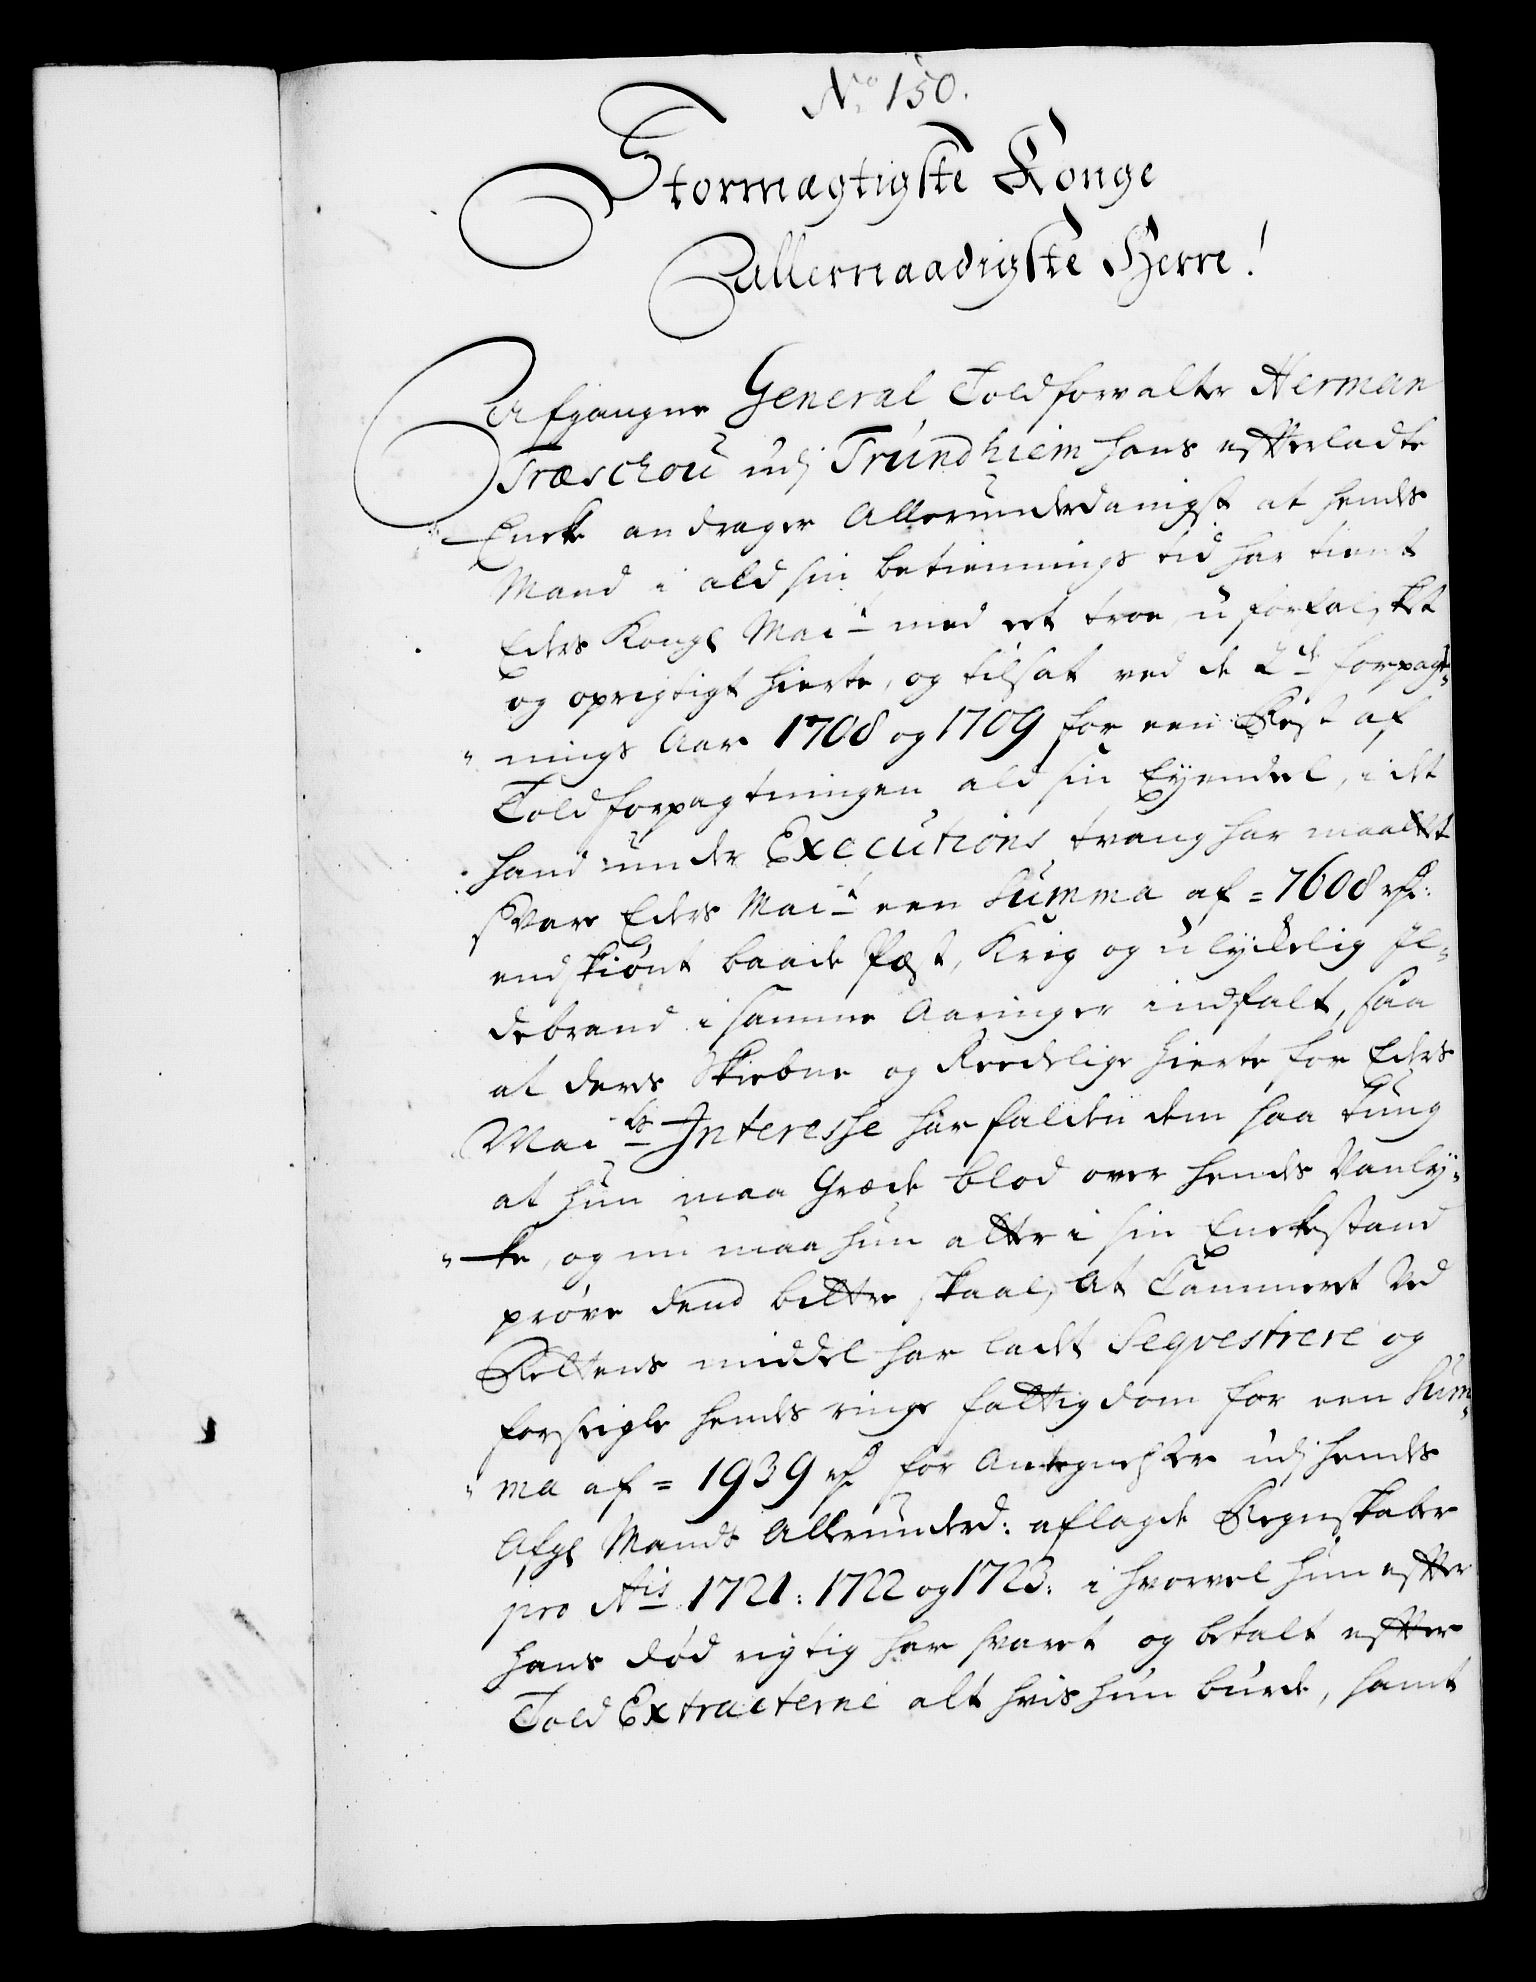 No 150.
Stormægtigste Konge
Allernaadigste Herre!
Afgangne General Toldforvalter Herman
Træschou udj Trundhiem hans efterladte
Encke andrager Allerunderdanigst at hendes
Mand i ald sin betiennings tid har tient
Eders Kongl Mait med et troe, uforfalsket
og oprigtigt hierte, og tilsat ved de 2de forpagt-
nings Aar 1708 og 1709 for een Rest af
Toldforpagtningen ald sin Eyendeel, i det
hand under Executions tvang har maattet
svare Eders Mait een Summa af = 7608 rd:
endskiønt baade Pæst, Krig og ulyckelig Il-
debrand i samme Aaringer indfalt, saa
at deres Skiebne og Reedelige hierte for Eders
Maits Interesse har falden dem saa tung
at hun maa Græde blod over hendes Vanly-
ke, og nu maa hun atter i sin Enckestand
prøve dend bittre skaal, At Cammeret ved
Rettens middel har ladt Seqvestrere og
forseigle hendes ringe fattigdom for een Sum-
ma af = 1939 rd for Antegnelser udj hendes
Afgl Mands Allerunderd: aflagde Regnskaber
pro Ais 1721: 1722 og 1723: i hvorvel hun efter
hans død rigtig har svaret og betalt efter
Told Extracterne alt hvis hun burde, samt